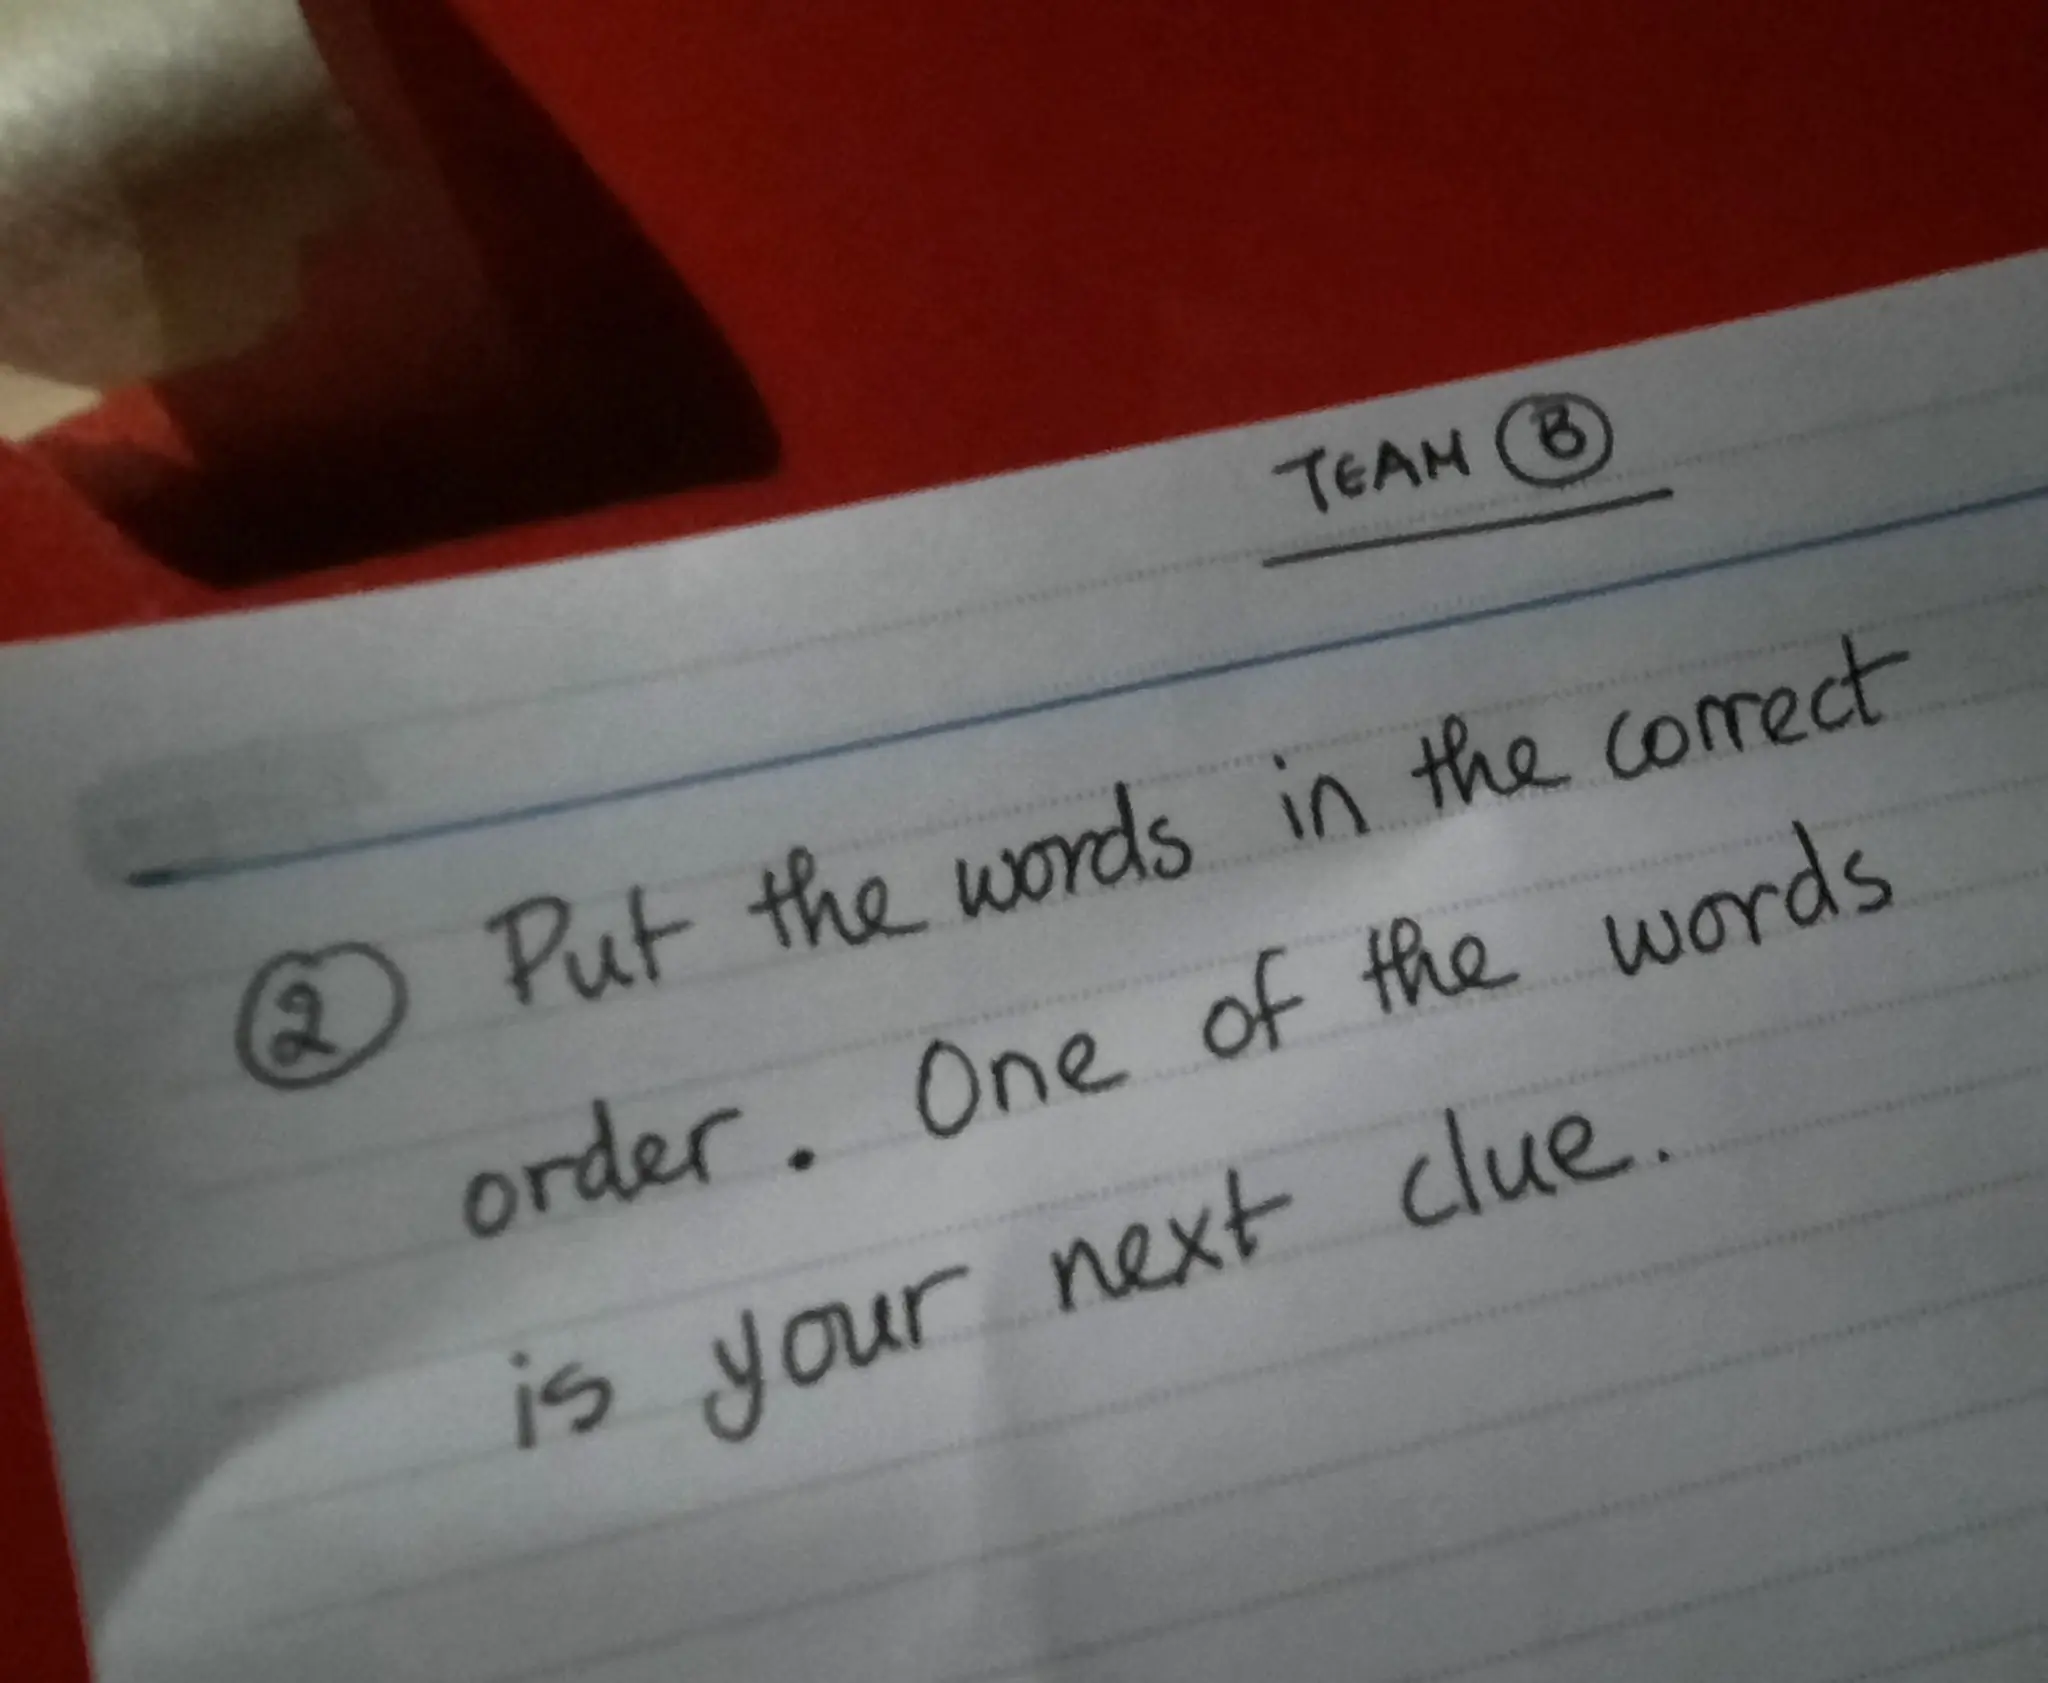 TEAM B
2 Put the words in the correct
order. One of the words
is your next clue.